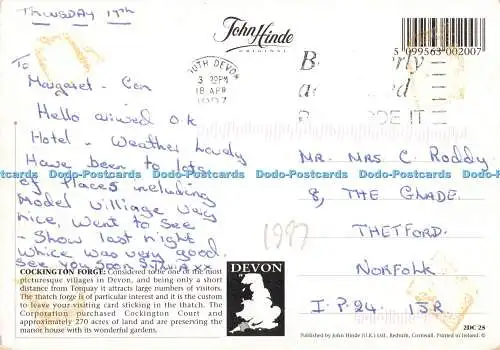 THURSDAY 17TH
John Hinde
ORIGINAL
5 099563 002007
SOUTH DEVON
3 30PM
18 APR
1997
To
Margaret - Con
Hello arrived O.K
Hotel - Weather Lovely
Have been to lots
of Places including
Model Villiage Very
nice, Went to See
- Show last night
Whice was very good.
See you soon
Mr. Mrs C. Roddy
8, THE GLADE.
THETFORD.
NORFOLK
I.P.24. 1SR.
1997
COCKINGTON FORGE: Considered to be one of the most
picturesque villages in Devon, and being only a short
distance from Torquay it attracts large numbers of visitors.
The thatch forge is of particular interest and it is the custom
to leave your visiting card sticking in the thatch. The
Corporation purchased Cockington Court and
approximately 270 acres of land and are preserving the
manor house with its wonderful gardens.
DEVON
2DC 28
Published by John Hinde (U.K.) Ltd., Redruth, Cornwall. Printed in Ireland. ©
Dodo-Postcards Dodo-Postcards Dodo-Postcards Dodo-Postcards